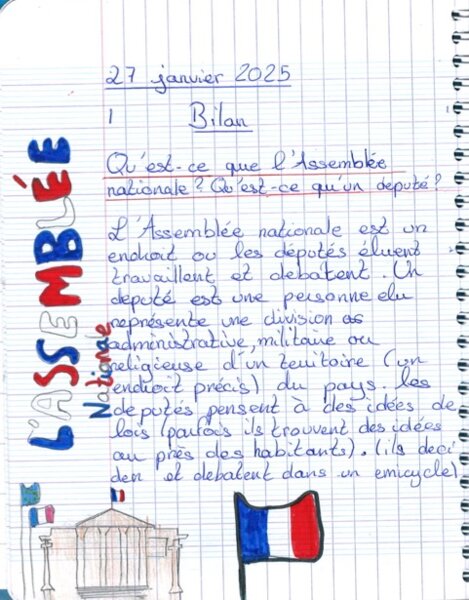 27 janvier 2025
Bilan
Qu'est-ce que l'Assemblée
nationale? Qu'est-ce qu'un deputé?
L'Assemblée nationale est un
endroit ou les députés éluent
travaillent et debatent. Un
deputé est une personne elu
représente une division as
administrative, militaire ou
religieuse d'un territoire (un
endroit précis) du pays. les
deputés pensent à des idées de
lois (parfois ils trouvent des idées
au près des habitants). (ils deci
dent et debatent dans un emicycle)
L'ASSEMBLÉE
Nationale